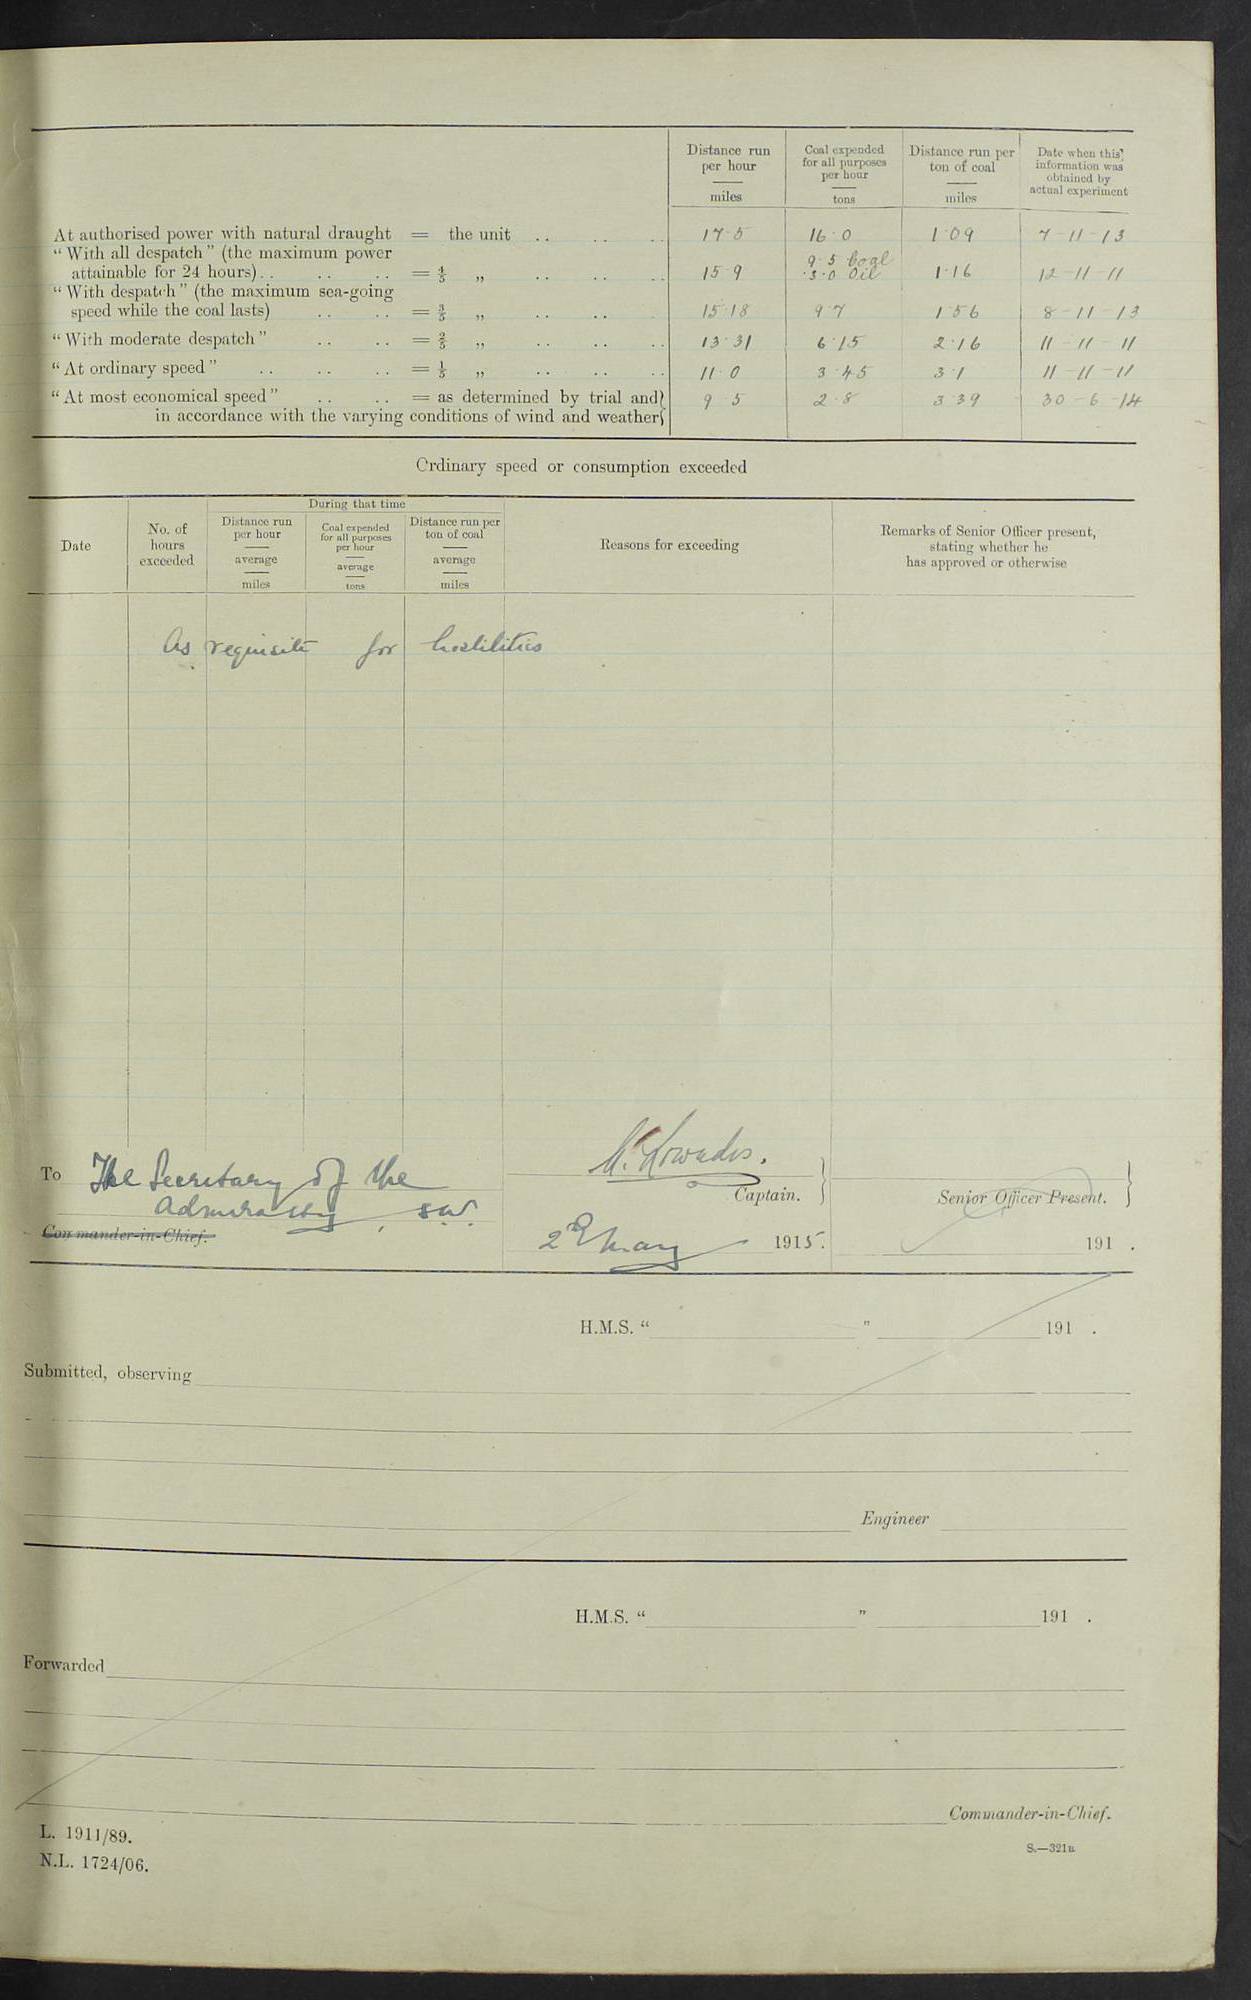 Distance run per hour — miles
Coal expended for all purposes per hour — tons
Distance run per ton of coal — miles
Date when this information was obtained by actual experiment
At authorised power with natural draught = the unit .. .. .. 17·5 16·0 1·09 7-11-13
"With all despatch" (the maximum power
attainable for 24 hours).. .. .. = 4/5 „ .. .. .. 15·9 9·5 Coal 3·0 Oil 1·16 12-11-11
"With despatch" (the maximum sea-going
speed while the coal lasts) .. .. = 3/5 „ .. .. 15·18 9·7 1·56 8-11-13
"With moderate despatch" .. .. = 2/5 „ .. .. .. 13·31 6·15 2·16 11-11-11
"At ordinary speed" .. .. .. = 1/5 „ .. .. .. 11·0 3·45 3·1 11-11-11
"At most economical speed" .. .. = as determined by trial and 9·5 2·8 3·39 30-6-14
in accordance with the varying conditions of wind and weather
Ordinary speed or consumption exceeded
Date
No. of hours exceeded
During that time
Distance run per hour — average — miles
Coal expended for all purposes per hour — average — tons
Distance run per ton of coal — average — miles
Reasons for exceeding
Remarks of Senior Officer present, stating whether he has approved or otherwise
As requisite for hostilities
To The Secretary of the
Admiralty, S.W.
Commander-in-Chief.
Captain.
2nd May 1915.
Senior Officer Present.
191 .
H.M.S. " " 191 .
Submitted, observing
Engineer
H.M.S. " " 191 .
Forwarded
Commander-in-Chief.
L. 1911/89.
N.L. 1724/06.
S.—321B